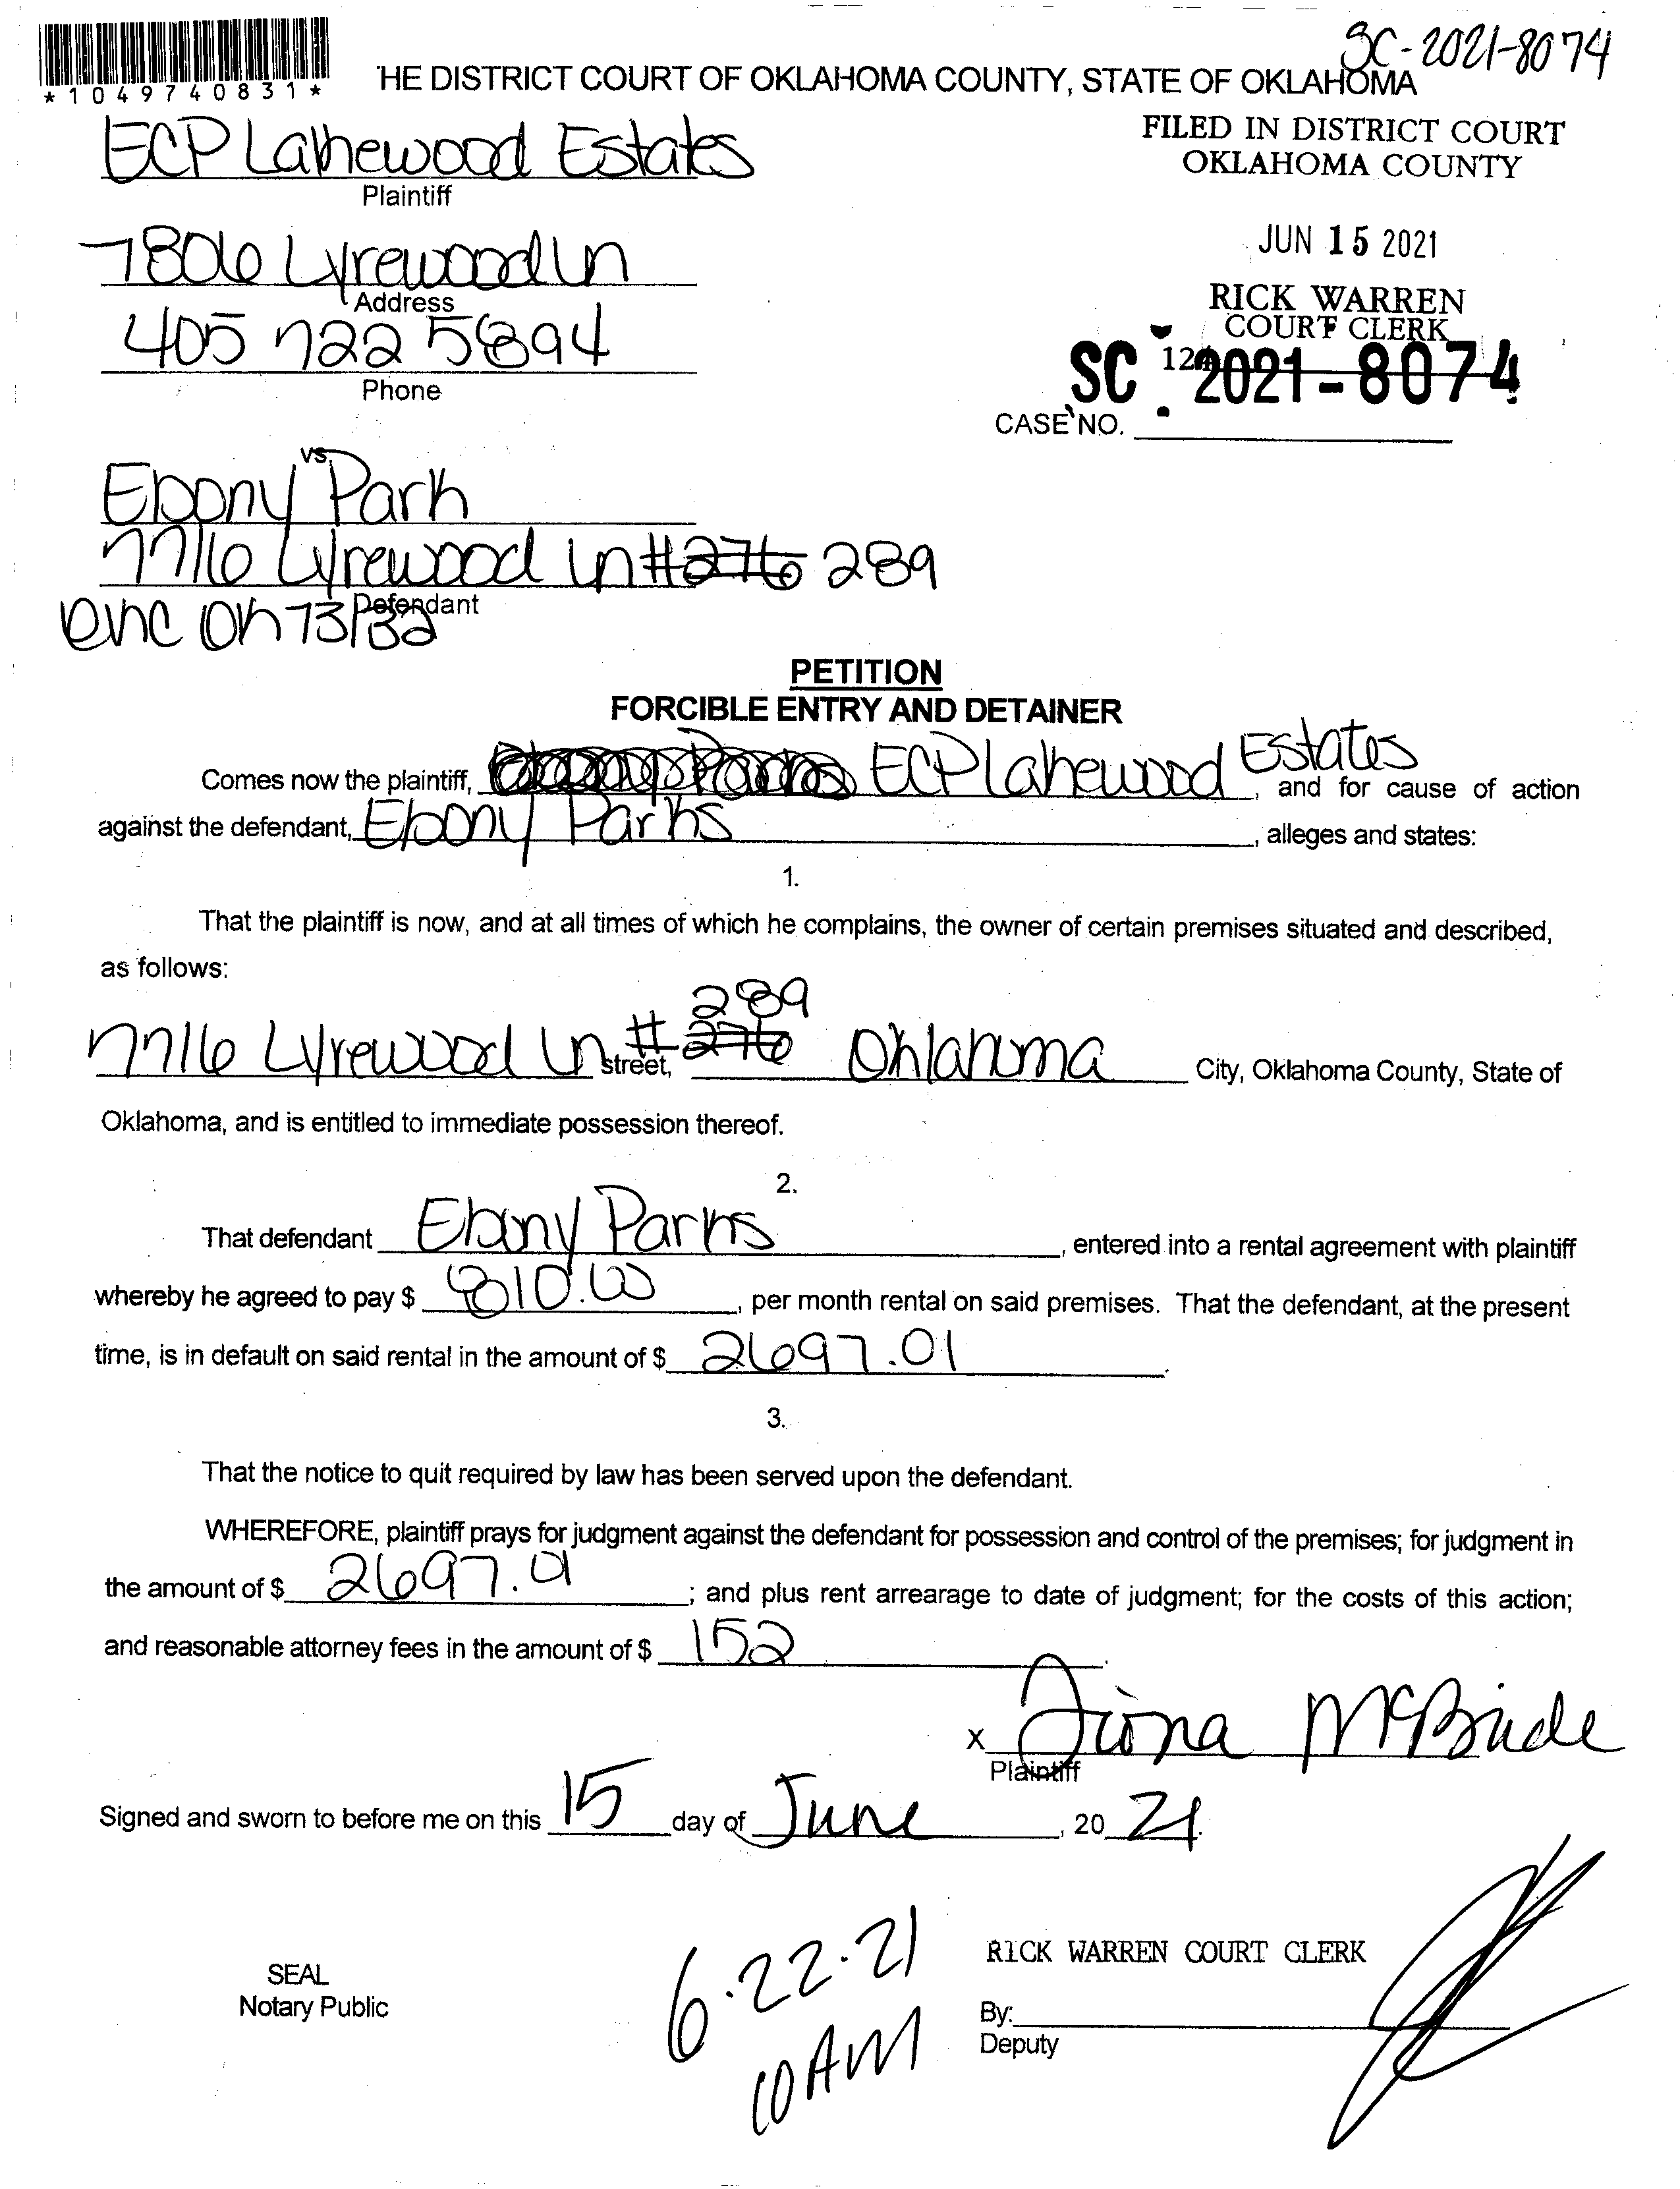 SC-2021-8074
*1049740831*
HE DISTRICT COURT OF OKLAHOMA COUNTY, STATE OF OKLAHOMA
ECP Lakewood Estates
Plaintiff
FILED IN DISTRICT COURT
OKLAHOMA COUNTY
7806 Lyrewood Ln
Address
JUN 15 2021
405 722 5894
Phone
RICK WARREN
COURT CLERK
124
SC 2021-8074
CASE NO.
vs.
Ebony Park
7716 Lyrewood Ln #276 289
Defendant
OKC OK 73132
PETITION
FORCIBLE ENTRY AND DETAINER
Comes now the plaintiff, ECP Lakewood Estates, and for cause of action
against the defendant, Ebony Parks, alleges and states:
1.
That the plaintiff is now, and at all times of which he complains, the owner of certain premises situated and described,
as follows:
289
7716 Lyrewood Ln # street, 276 Oklahoma City, Oklahoma County, State of
Oklahoma, and is entitled to immediate possession thereof.
2.
That defendant Ebony Parks, entered into a rental agreement with plaintiff
whereby he agreed to pay $ 810.00, per month rental on said premises. That the defendant, at the present
time, is in default on said rental in the amount of $ 2697.01.
3.
That the notice to quit required by law has been served upon the defendant.
WHEREFORE, plaintiff prays for judgment against the defendant for possession and control of the premises; for judgment in
the amount of $ 2697.01; and plus rent arrearage to date of judgment; for the costs of this action;
and reasonable attorney fees in the amount of $ 152.
X Fiona McBride
Plaintiff
Signed and sworn to before me on this 15 day of June, 20 21.
6.22.21
10 AM
RICK WARREN COURT CLERK
SEAL
Notary Public
By:
Deputy